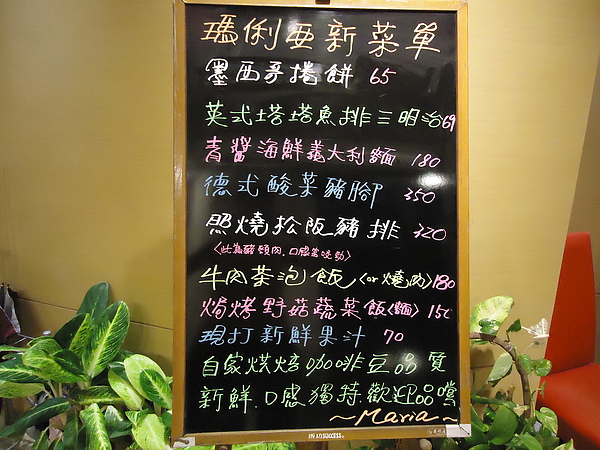 瑪俐亞新菜單
墨西哥捲餅 65
英式塔塔魚排三明治 69
青醬海鮮義大利麵 180
德式酸菜豬腳 350
照燒松阪豬排 320
牛肉茶泡飯 (or 燒肉) 180
焗烤野菇蔬菜飯(麵) 150
現打新鮮果汁 70
自家烘焙咖啡豆品質
新鮮.口感獨特.歡迎品嚐
~Maria~
SUCCESS